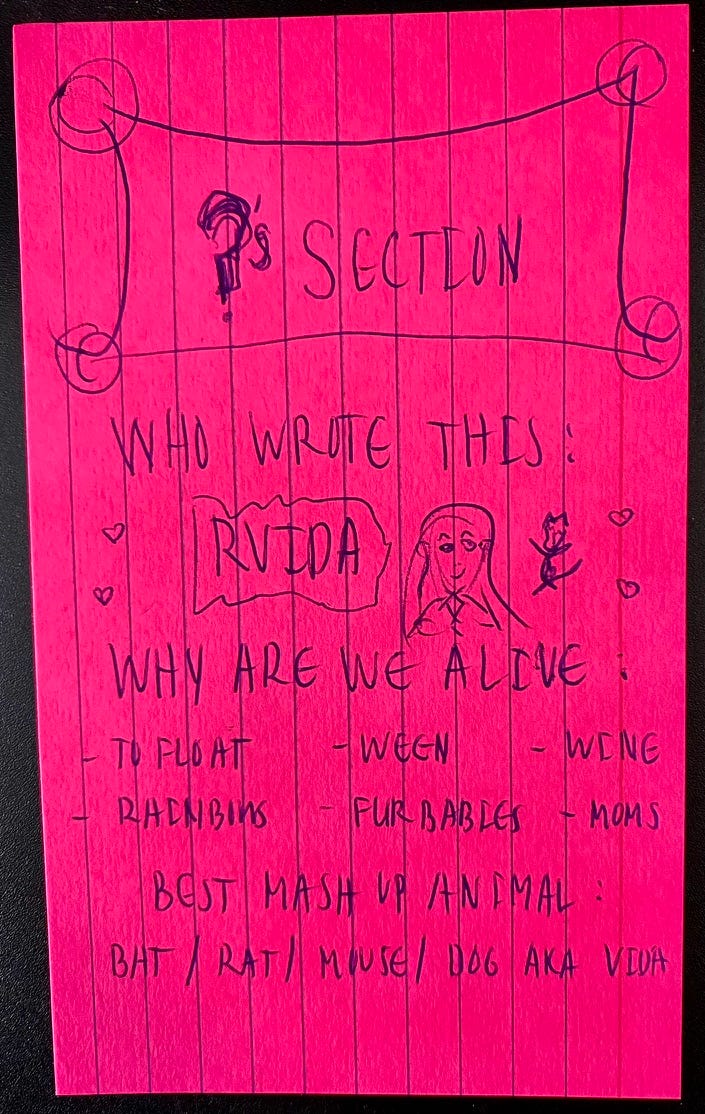 ?'s SECTION
WHO WROTE THIS:
RVIDA
WHY ARE WE ALIVE:
- TO FLOAT - WEEN - WINE
- RAINBOWS - FUR BABIES - MOMS
BEST MASH UP ANIMAL:
BAT / RAT / MOUSE / DOG AKA VIDA